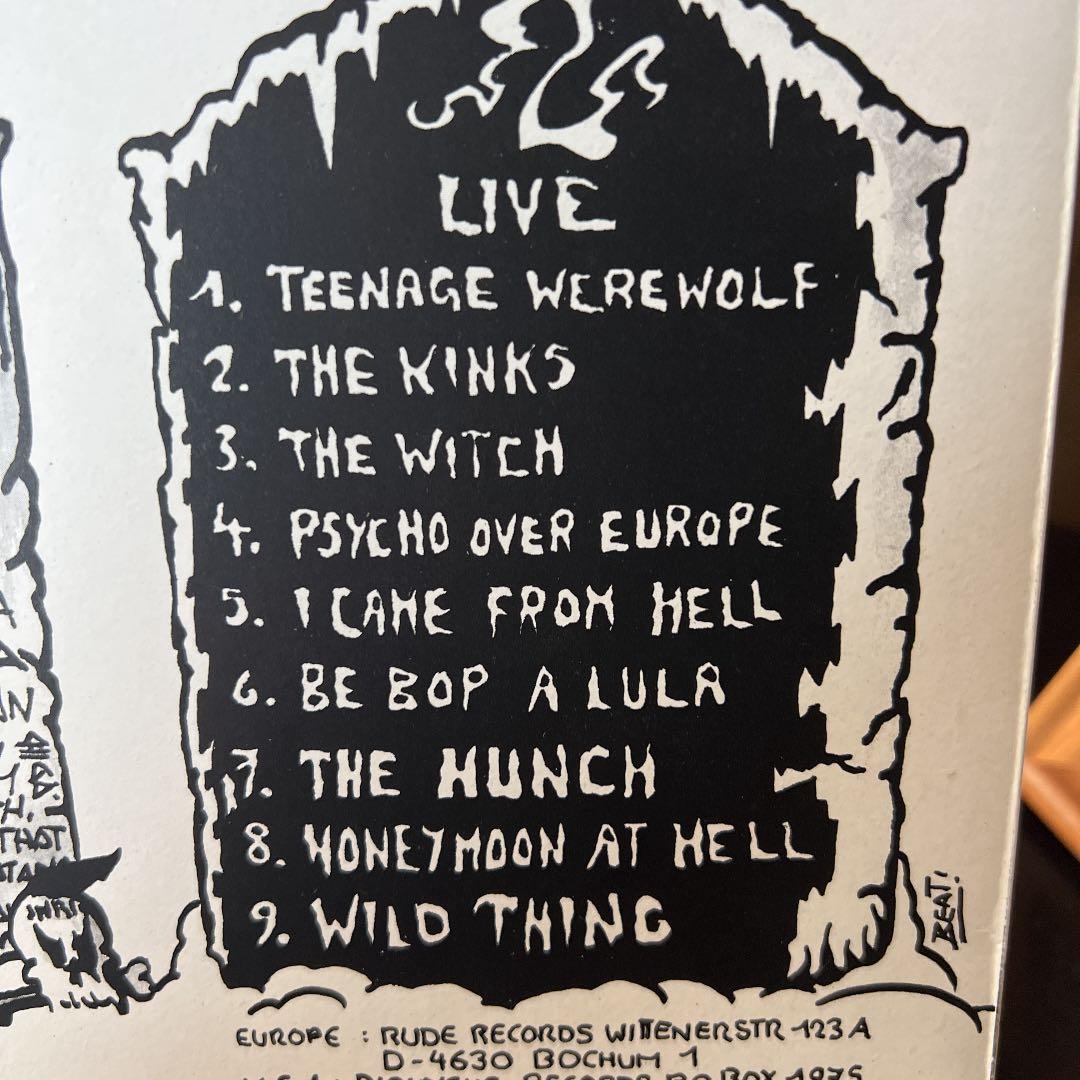 LIVE
1. TEENAGE WEREWOLF
2. THE KINKS
3. THE WITCH
4. PSYCHO OVER EUROPE
5. I CAME FROM HELL
6. BE BOP A LULA
7. THE HUNCH
8. HONEYMOON AT HELL
9. WILD THING
BEAT!
THAT
EUROPE : RUDE RECORDS WITTENERSTR 123 A
D-4630 BOCHUM 1
RECORDS BOX 1975